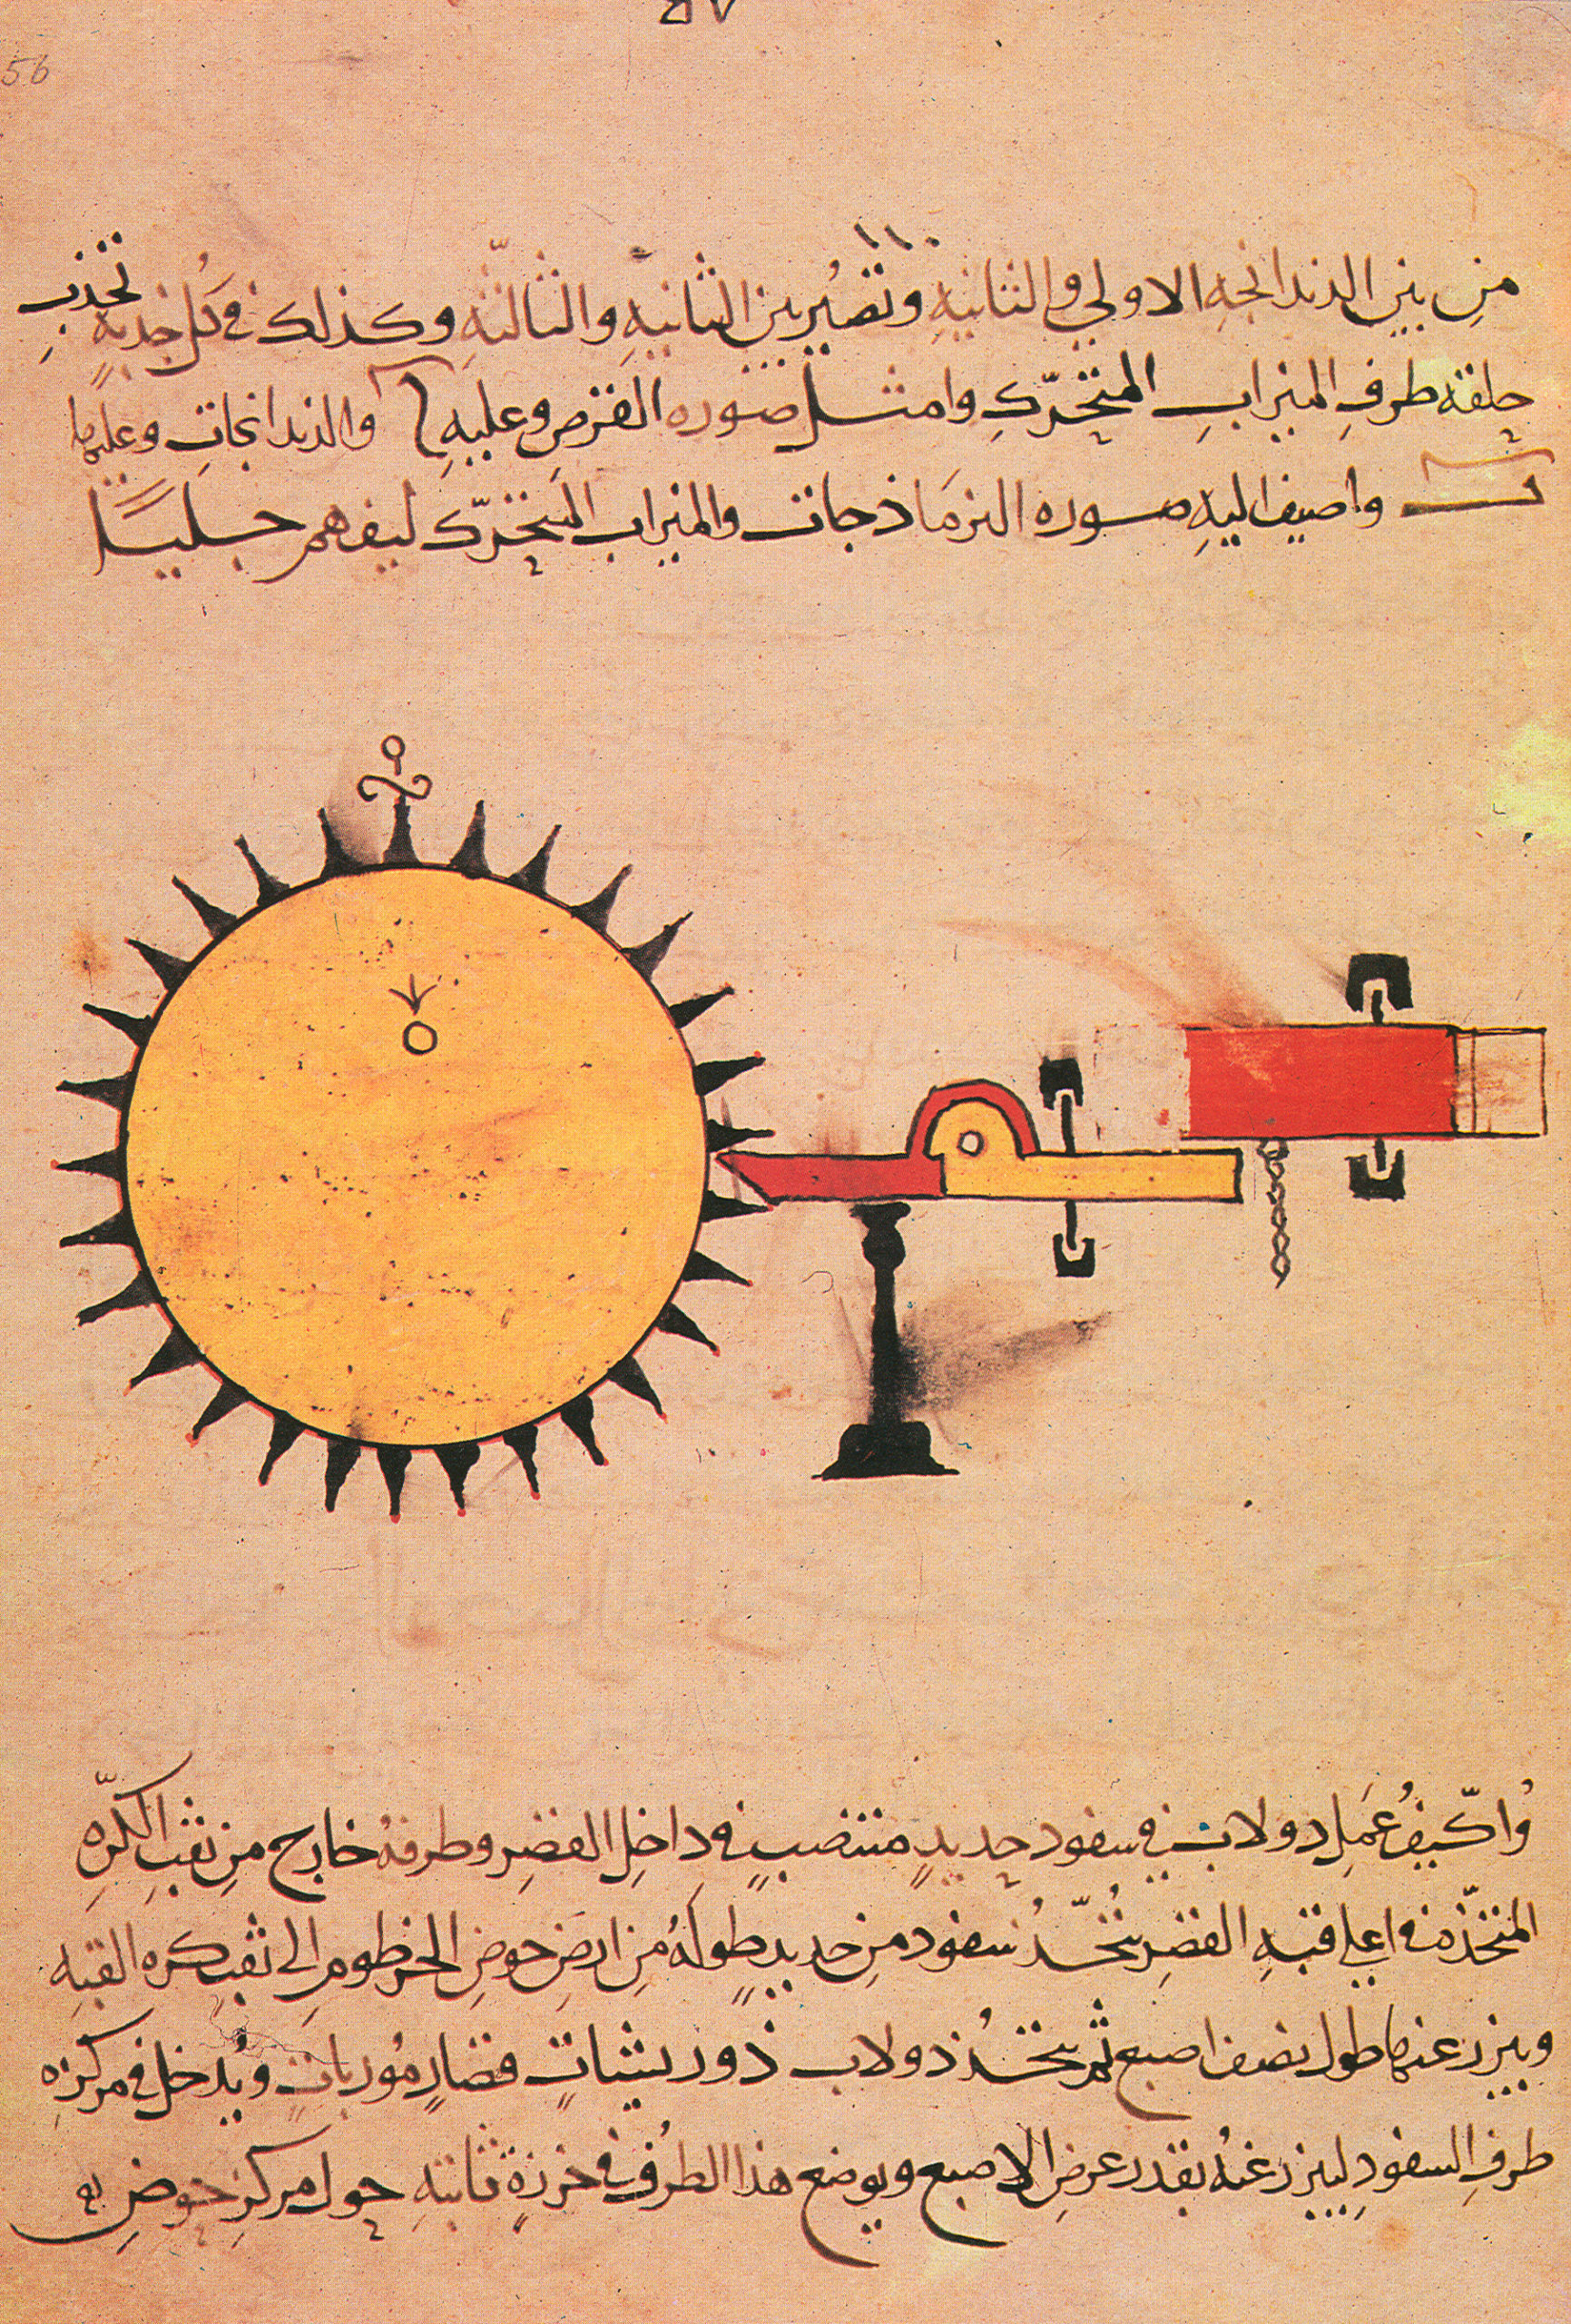 ٤٧
56
من بين الدندانجه الاولي والثانيهِ وتصُير بين الثانيهِ والثالثهِ وكذلك في كل جذبهٍ تجذبِ
حلقه طرفِ الميزابِ المتحرّكِ وامثل صوره القرص وعليهِ والدندانجاتِ وعليها
واضيف اليهِ صوره النرماذجات والميزاب المتحرّك ليفهم جليًا
واكيفُ عَمِل دولاب في سفود حديدٍ منتصبٍ في داخِل القصرِ وطرفهُ خارج مِن ثقبِ الكرّهِ
المتخذه في اعلي قبهِ القصرِ يتخّذُ سفود مِن حديدٍ طولهُ مِن ارضِ حوضِ الخرطومِ الى ثقب كره القبهِ
ويبرز عنها طول نصف اصبع ثم يتخُذ دولاب ذو ريشاتٍ قصارٍ مُورباتٍ ويُدخل في مركزهِ
طرفِ السفودِ ليبرز عنهُ بقدر عرضِ الاصبع ويوضع هذا الطرُف في خرزةٍ ثابتهِ حول مركزِ حوضِ